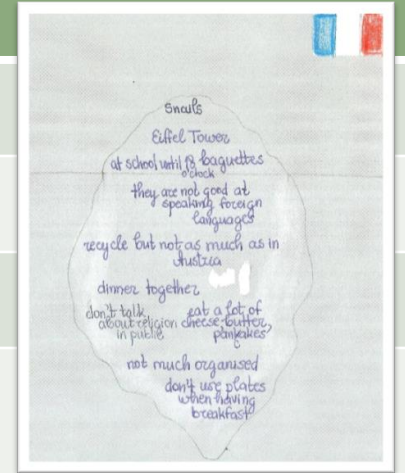 Snails
Eiffel Tower
at school until 18 baguettes
o'clock
they are not good at
speaking foreign
languages
recycle but not as much as in
Austria
dinner together
don't talk
about religion
in public
eat a lot of
cheese, butter,
pankakes
not much organised
don't use plates
when having
breakfast